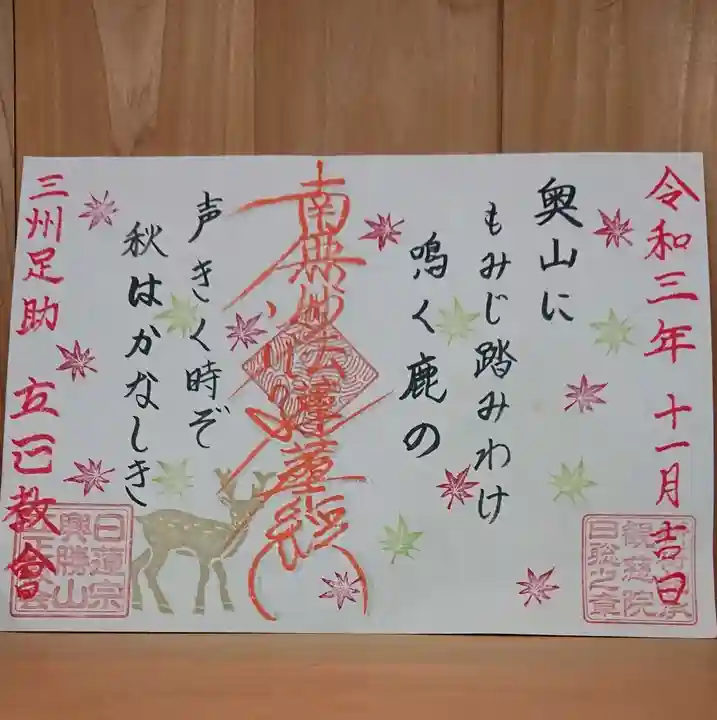 令和三年 十一月吉日
奥山に
もみじ踏みわけ
鳴く鹿の
南無妙法蓮華経
声きく時ぞ
秋はかなしき
三州足助 立正教會
日蓮宗
興勝山